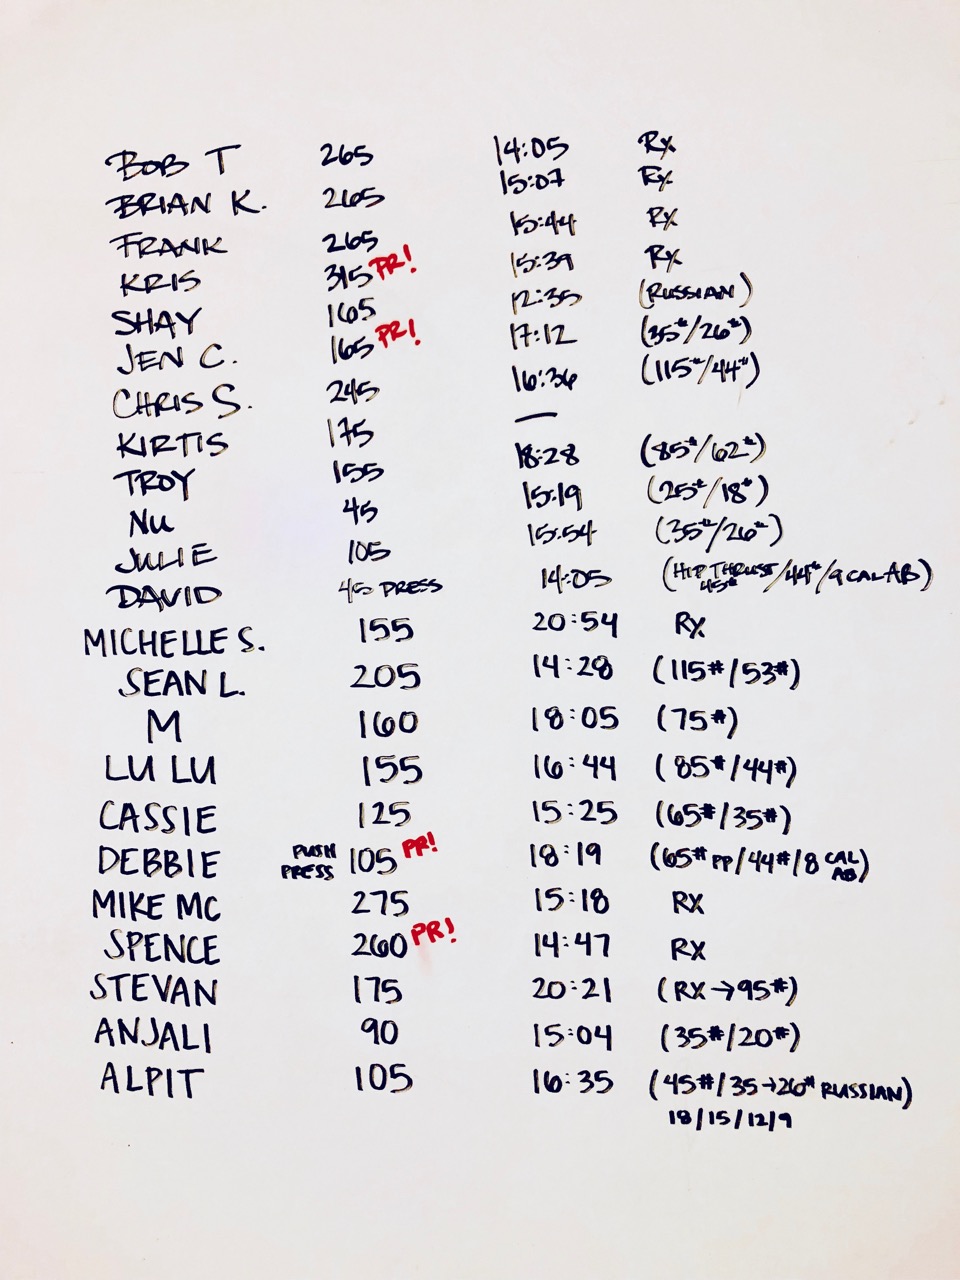 BOB T 265 14:05 Rx
BRIAN K. 265 15:07 Rx
FRANK 265 15:44 Rx
KRIS 315 PR! 15:39 Rx
SHAY 165 12:35 (RUSSIAN)
JEN C. 165 PR! 17:12 (35#/26#)
CHRIS S. 245 16:36 (115#/44#)
KIRTIS 175 —
TROY 155 18:28 (85#/62#)
NU 45 15:19 (25#/18#)
JULIE 105 15:54 (35#/26#)
DAVID 45 PRESS 14:05 (HIP THRUST 45#/44#/9 CAL AB)
MICHELLE S. 155 20:54 Rx
SEAN L. 205 14:28 (115#/53#)
M 160 18:05 (75#)
LU LU 155 16:44 (85#/44#)
CASSIE 125 15:25 (65#/35#)
DEBBIE PUSH PRESS 105 PR! 18:19 (65# PP/44#/8 CAL AB)
MIKE MC 275 15:18 RX
SPENCE 260 PR! 14:47 RX
STEVAN 175 20:21 (RX→95#)
ANJALI 90 15:04 (35#/20#)
ALPIT 105 16:35 (45#/35→26# RUSSIAN)
18/15/12/9